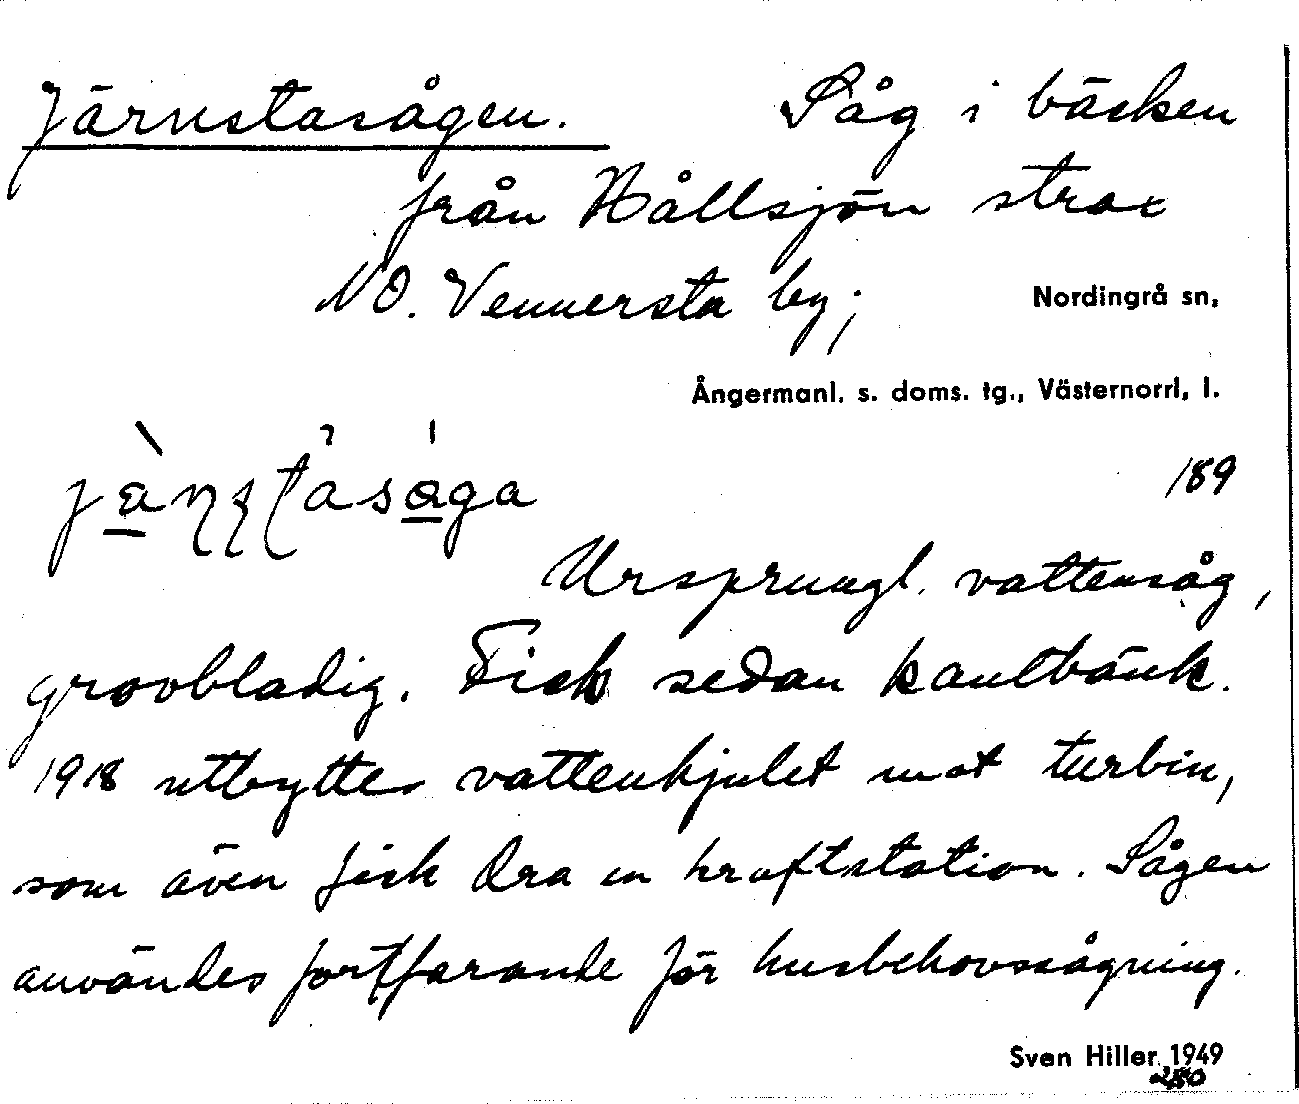 Järnstasågen. Såg i bäcken
från Hållsjön strax
NO. Vennersta by;
Nordingrå sn,
Ångermanl. s. doms. tg., Västernorrl, l.
189
Ursprungl. vattensåg,
grovbladig. Fick sedan kantbänk.
1918 utbyttes vattenhjulet mot turbin,
som även fick dra en kraftstation. Sågen
användes fortfarande för husbehovssågning.
Sven Hiller 1949